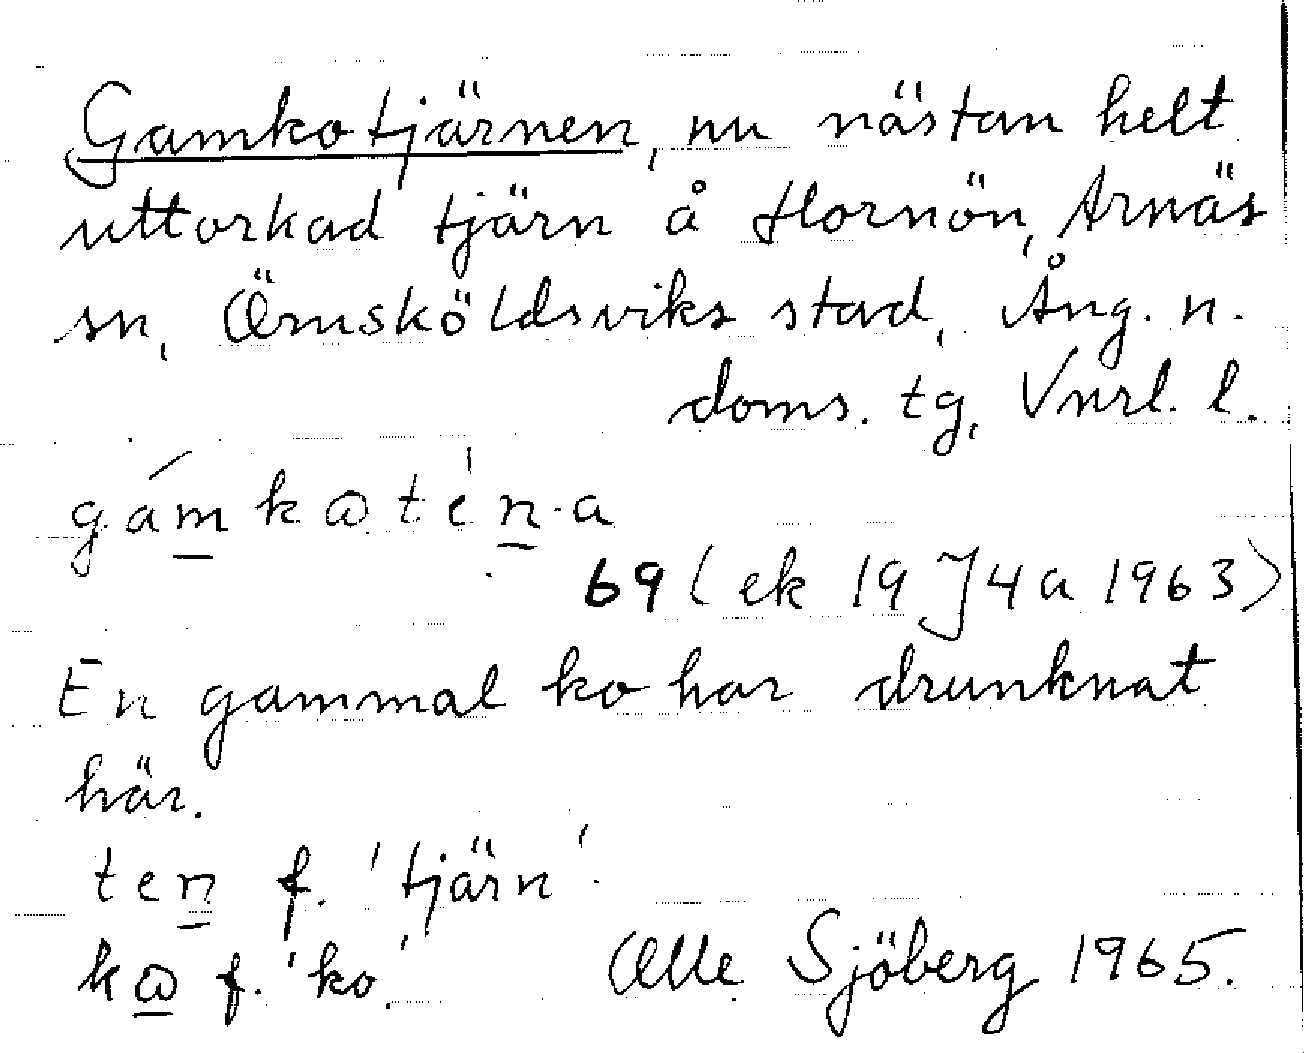 Gamkotjärnen, nu nästan helt
uttorkad tjärn å Hornön, Arnäs
sn, Örnsköldsviks stad, Ång. n.
doms. tg, Vnrl. l.
gámkωtén·a
69 (ek 19 J4a 1963)
En gammal ko har drunknat
här.
ten f. 'tjärn'.
kω f. 'ko.'
Olle Sjöberg 1965.